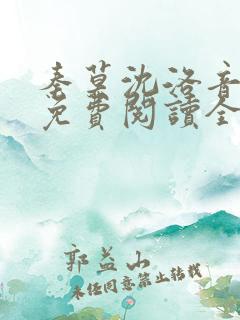 秦墓沈洛音
免費閱讀全
郭益山
未经同意禁止转载